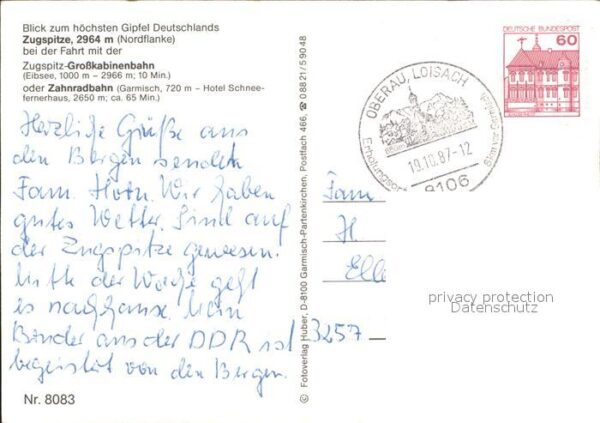 Blick zum höchsten Gipfel Deutschlands
Zugspitze, 2964 m (Nordflanke)
bei der Fahrt mit der
Zugspitz-Großkabinenbahn
(Eibsee, 1000 m – 2966 m; 10 Min.)
oder Zahnradbahn (Garmisch, 720 m – Hotel Schnee-
fernerhaus, 2650 m; ca. 65 Min.)
Herzliche Grüße aus
den Bergen senden
Fam. Horn. Wir haben
gutes Wetter. Sind auf
der Zugspitze gewesen.
Mitte der Woche geht
es nachhause. Mein
Bruder aus der DDR ist
begeistert von den Bergen.
Nr. 8083
© Fotoverlag Huber, D-8100 Garmisch-Partenkirchen, Postfach 466, ☎ 08821/59048
OBERAU, LOISACH
Erholungsort
19.10.87-12
8106
DEUTSCHE BUNDESPOST
60
Fam
H
Elle
3257
privacy protection
Datenschutz